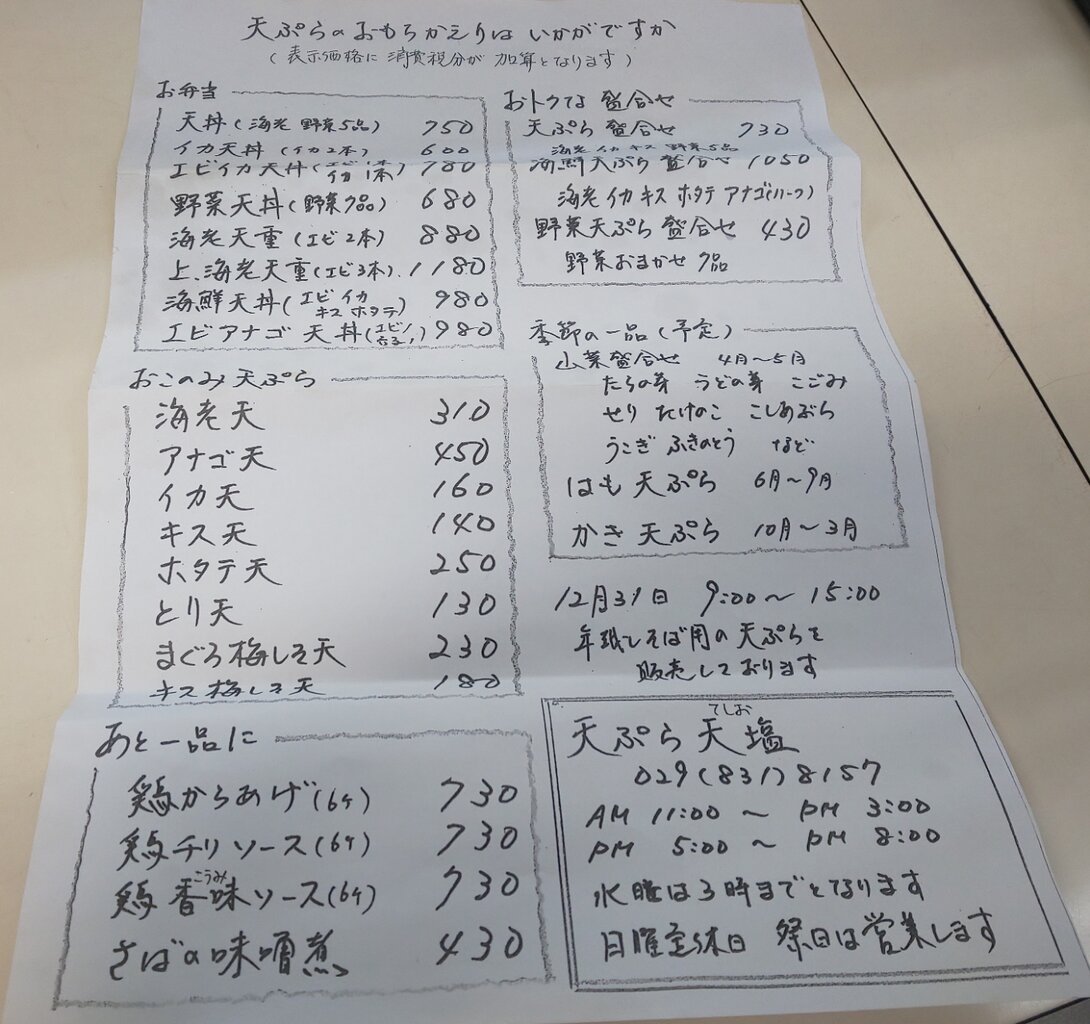 天ぷらのおもちかえりは いかがですか
(表示価格に 消費税分が 加算となります)
お弁当
天丼(海老 野菜5品) 750
イカ天丼(イカ2本) 600
エビイカ天丼(エビ1本 イカ1本) 780
野菜天丼(野菜9品) 680
海老天重(エビ2本) 880
上.海老天重(エビ3本) 1180
海鮮天丼(エビ イカ キス ホタテ) 980
エビアナゴ天丼 980
おこのみ天ぷら
海老天 310
アナゴ天 450
イカ天 160
キス天 140
ホタテ天 250
とり天 130
まぐろ梅しそ天 230
キス梅しそ天 180
あと一品に
鶏からあげ(6ケ) 730
鶏チリソース(6ケ) 730
鶏香味ソース(6ケ) 730
こうみ
さばの味噌煮 430
おトクな 盛合せ
天ぷら盛合せ 730
海老 イカ キス 野菜5品
海鮮天ぷら盛合せ 1050
海老 イカ キス ホタテ アナゴ(ハーフ)
野菜天ぷら盛合せ 430
野菜おまかせ 9品
季節の一品(予定)
山菜盛合せ 4月~5月
たらの芽 うどの芽 こごみ
せり たけのこ こしあぶら
うこぎ ふきのとう など
はも天ぷら 6月~9月
かき天ぷら 10月~3月
12月31日 9:00~15:00
年越しそば用の天ぷらを
販売しております
てしお
天ぷら天塩
029(831)8157
AM 11:00 ~ PM 3:00
PM 5:00 ~ PM 8:00
水曜は3時までとなります
日曜定休日 祭日は営業します